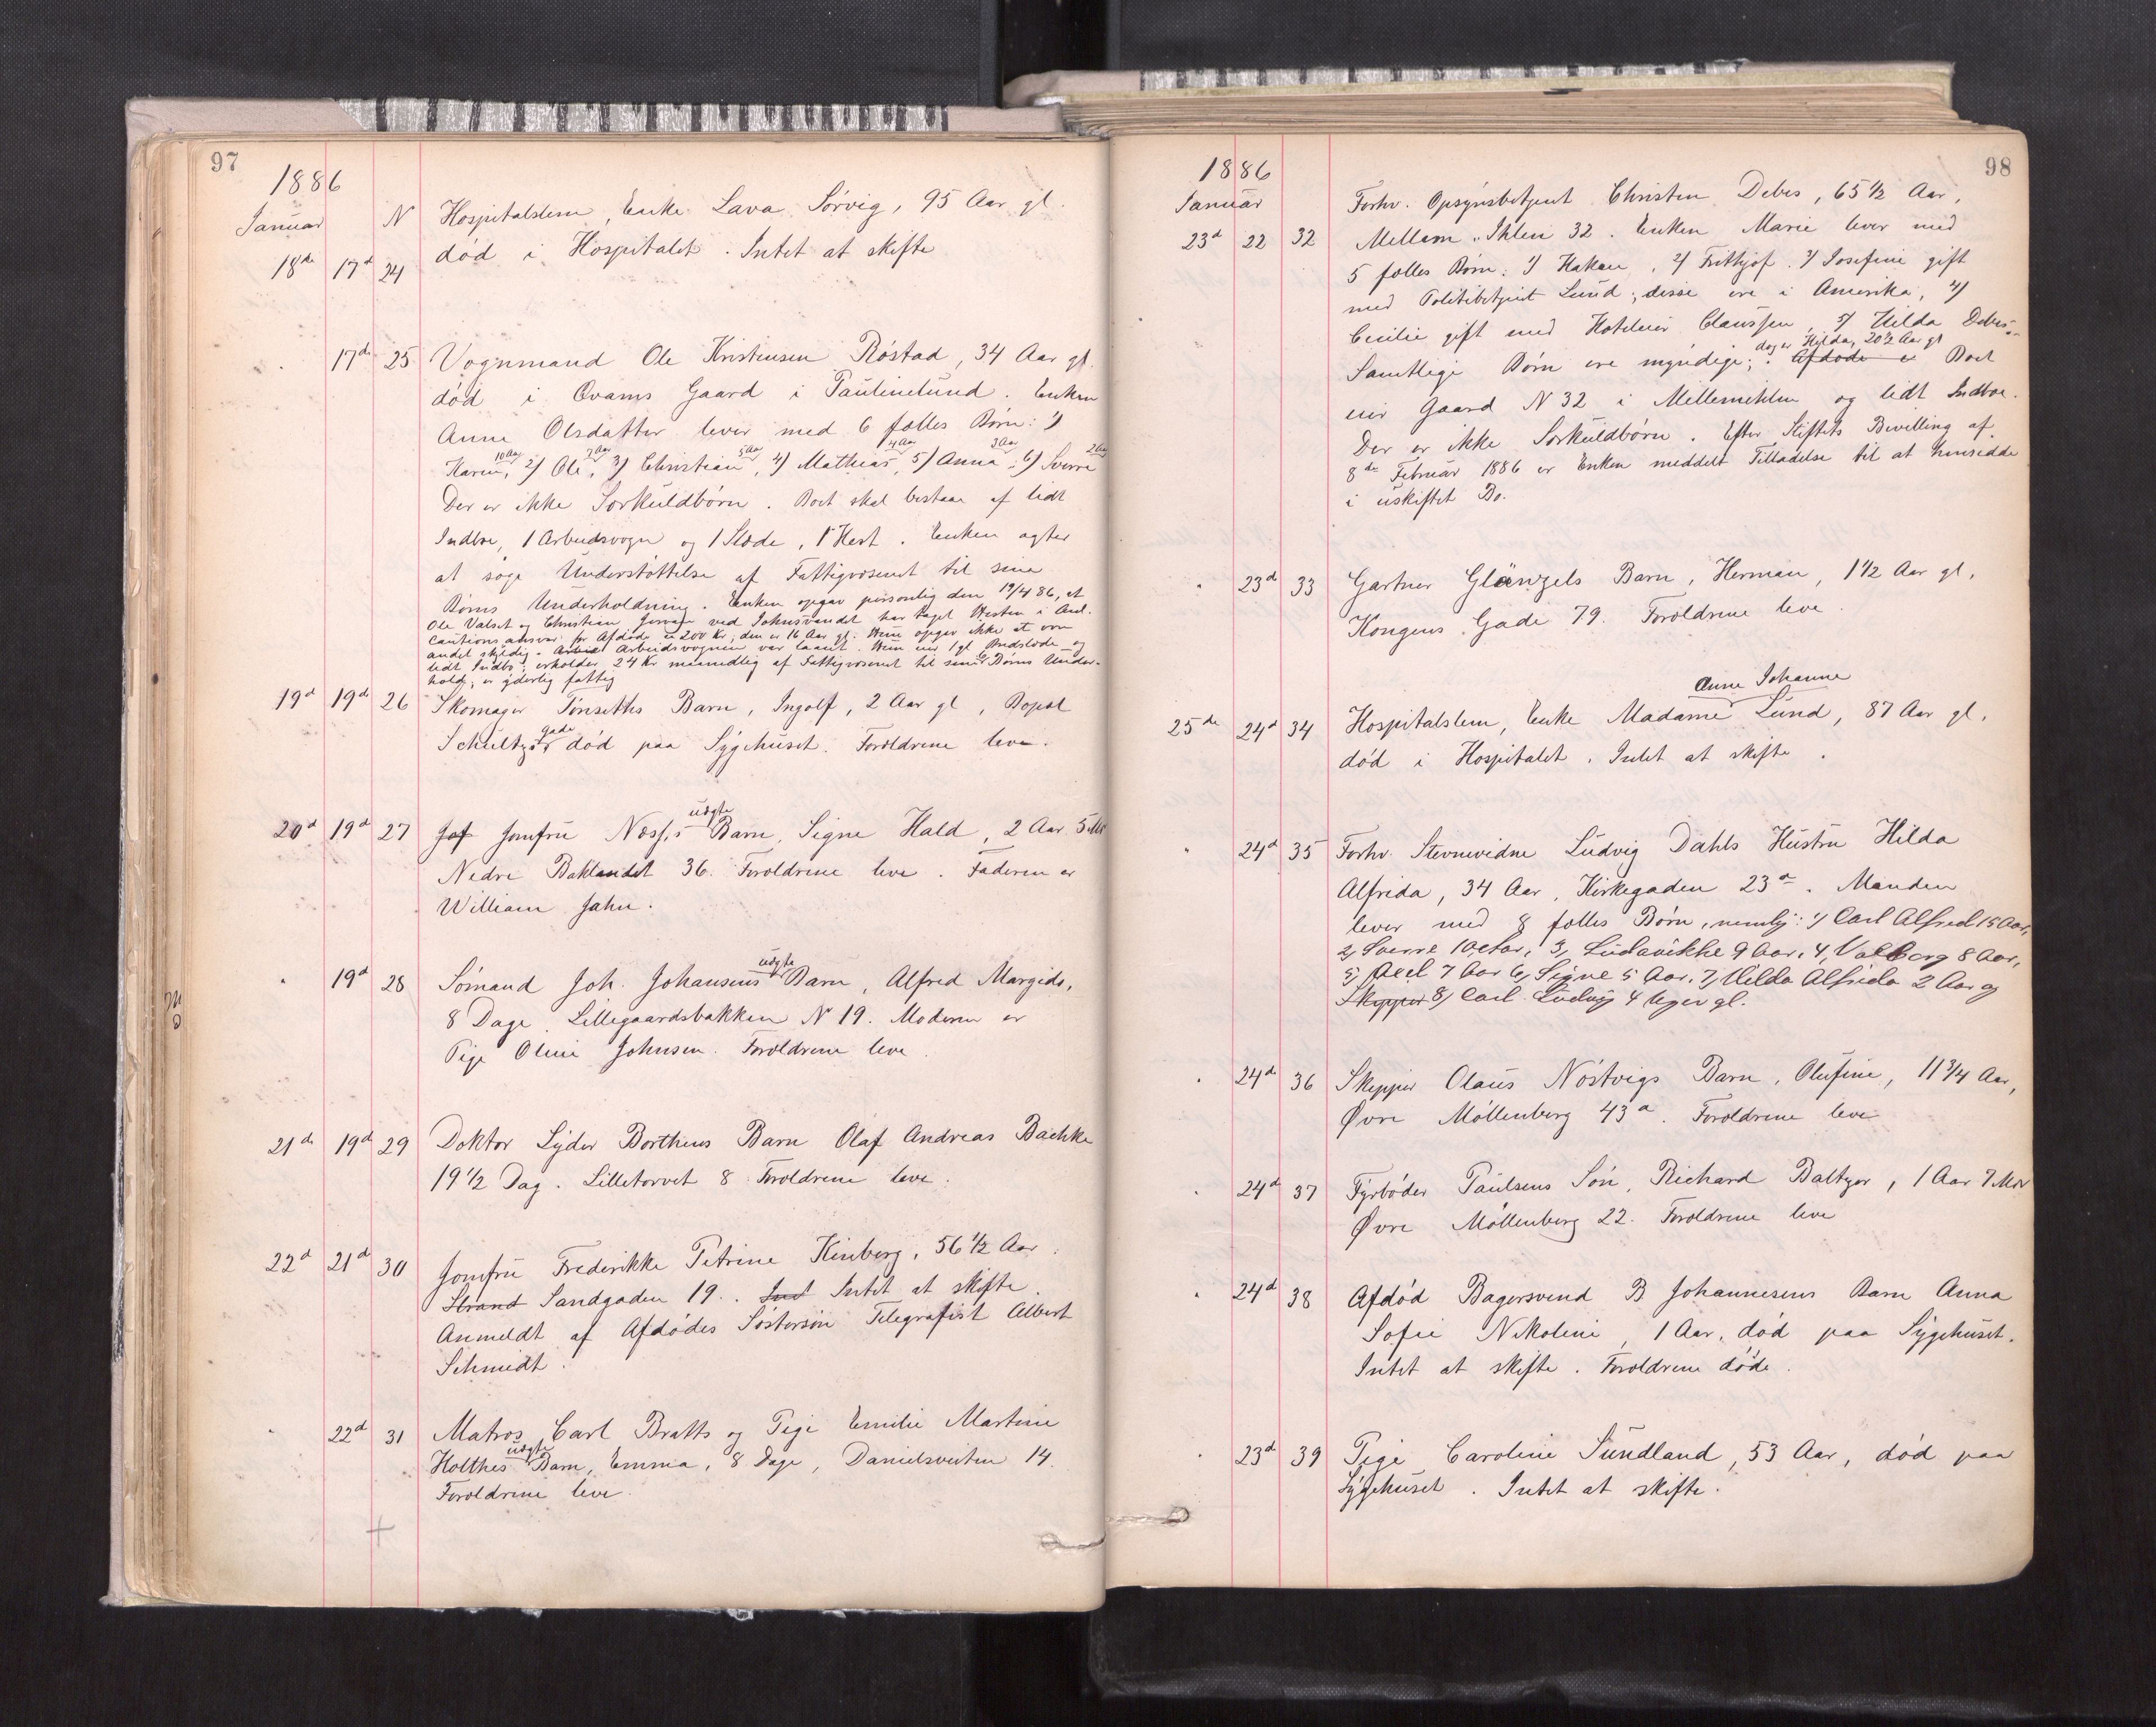 97
1886
Januar N Hospitalslem, Enke Lava Sørvig, 95 Aar gl.
18de 17d 24 død i Hospitalet. Intet at skifte
17de 25 Vognmand Ole Kristensen Røstad, 34 Aar gl.
død i Qvams Gaard i Paulinelund. Enken
Anne Olsdatter lever med 6 fælles Børn: 1)
10 Aar 7 Aar 5 Aar 4 Aar 3 Aar 2 Aar
Karen, 2) Ole, 3) Christian, 4) Mathias, 5) Anna, 6) Sverre
Der er ikke Særkuldbørn. Boet skal bestaa af lidt
Indbo, 1 Arbeidsvogn og 1 Slæde, 1 Hest. Enken agter
at søge Understøttelse af Fattigvæsenet til sine
Børns Underholdning. Enken opgav personlig den 19/4 86, at
Ole Valset og Christian ved Johnsvandet har taget Hesten i Anl.
Cautionsansvar for Afdøde 200 Kr; den er 16 Aar gl. Hun opgav ikke at være
andet skyldig. Arbeidsvognen var laant. Hun eier 1 gl Bredslæde og
lidt Indbo; erholder 24 Kr maanedlig af Fattigvæsenet til sine 6 Børns Under-
hold; er yderlig fattig
19d 19de 26 Skomager Tønseths Barn, Ingolf, 2 Aar gl, Bopæl
gade
Schultz død paa Sygehuset. Forældrene leve.
uægte
20d 19d 27 Jof Jomfru Næss's Barn, Signe Hald, 2 Aar 5 Md
Nedre Baklandet 36. Forældrene leve. Faderen er
William Jahn.
uægte
19d 28 Sømand Joh. Johansens Barn, Alfred Margido,
8 Dage. Lillegaardsbakken N 19. Moderen er
Pige Oline Johnsen. Forældrene leve.
21de 19d 29 Doktor Lyder Borthens Barn Olaf Andreas Bachke
19 1/2 Dag. Lilletorvet 8. Forældrene leve.
22d 21d 30 Jomfru Frederikke Petrine Kinberg, 56 1/2 Aar.
Strand Sandgaden 19. Int Intet at skifte.
Anmeldt af Afdødes Søstersøn Telegrafist Albert
Schmidt.
22d 31 Matros Carl Bratts og Pige Emilie Martine
uægte
Holthes Barn, Emma, 8 Dage, Danielsveiten 14.
Forældrene leve.
98
1886
Januar Forhv. Opsynsbetjent Christen Debes, 65 1/2 Aar,
23d 22 32 Mellem Ihlen 32. Enken Marie lever med
5 fælles Børn: 1) Hakon, 2) Frithjof. 3) Josefine gift
med Politibetjent Lund; disse ere i Amerika, 4)
Cecilie gift med Hoteleier Claussen, 5) Hilda Debes.
dog er Hilda, 20 1/2 Aar gl
Samtlige Børn ere myndige; Afdøde e Boet
eier Gaard N 32 i Mellemihlen og lidt Indbo.
Der er ikke Særkuldbørn. Efter Stiftets Bevilling af
8de Februar 1886 er Enken meddelt Tilladelse til at hensidde
i uskiftet Bo.
23d 33 Gartner Glänzels Barn, Herman, 1 1/2 Aar gl,
Kongens Gade 79. Forældrene leve.
Anne Johanne
25de 24d 34 Hospitalslem, Enke Madame Lund, 87 Aar gl.
død i Hospitalet. Intet at skifte.
24d 35 Forhv. Stevnevidne Ludvig Dahls Hustru Hilda
Alfrida, 34 Aar, Kirkegaden 23a. Manden
lever med 8 fælles Børn, nemlig: 1) Carl Alfred 15 Aar,
2, Sverre 10 Aar, 3, Ludovikke 9 Aar, 4, Valborg 8 Aar,
5, Axel 7 Aar 6, Signe 5 Aar. 7, Hilda Alfrida 2 Aar og
Skipper 8, Carl Ludvig 4 Uger gl.
24d 36 Skipper Olaus Nøstvigs Barn, Olufine, 11 3/4 Aar,
Øvre Møllenberg 43a. Forældrene leve
24d 37 Fyrbøder Paulsens Søn, Richard Baltzer, 1 Aar 7 Mdr
Øvre Møllenberg 22. Forældrene leve
24d 38 Afdød Bagersvend B Johannesens Barn Anna
Sofie Nikoline, 1 Aar, død paa Sygehuset.
Intet at skifte. Forældrene døde.
23d 39 Pige Caroline Sundland, 53 Aar, død paa
Sygehuset. Intet at skifte.